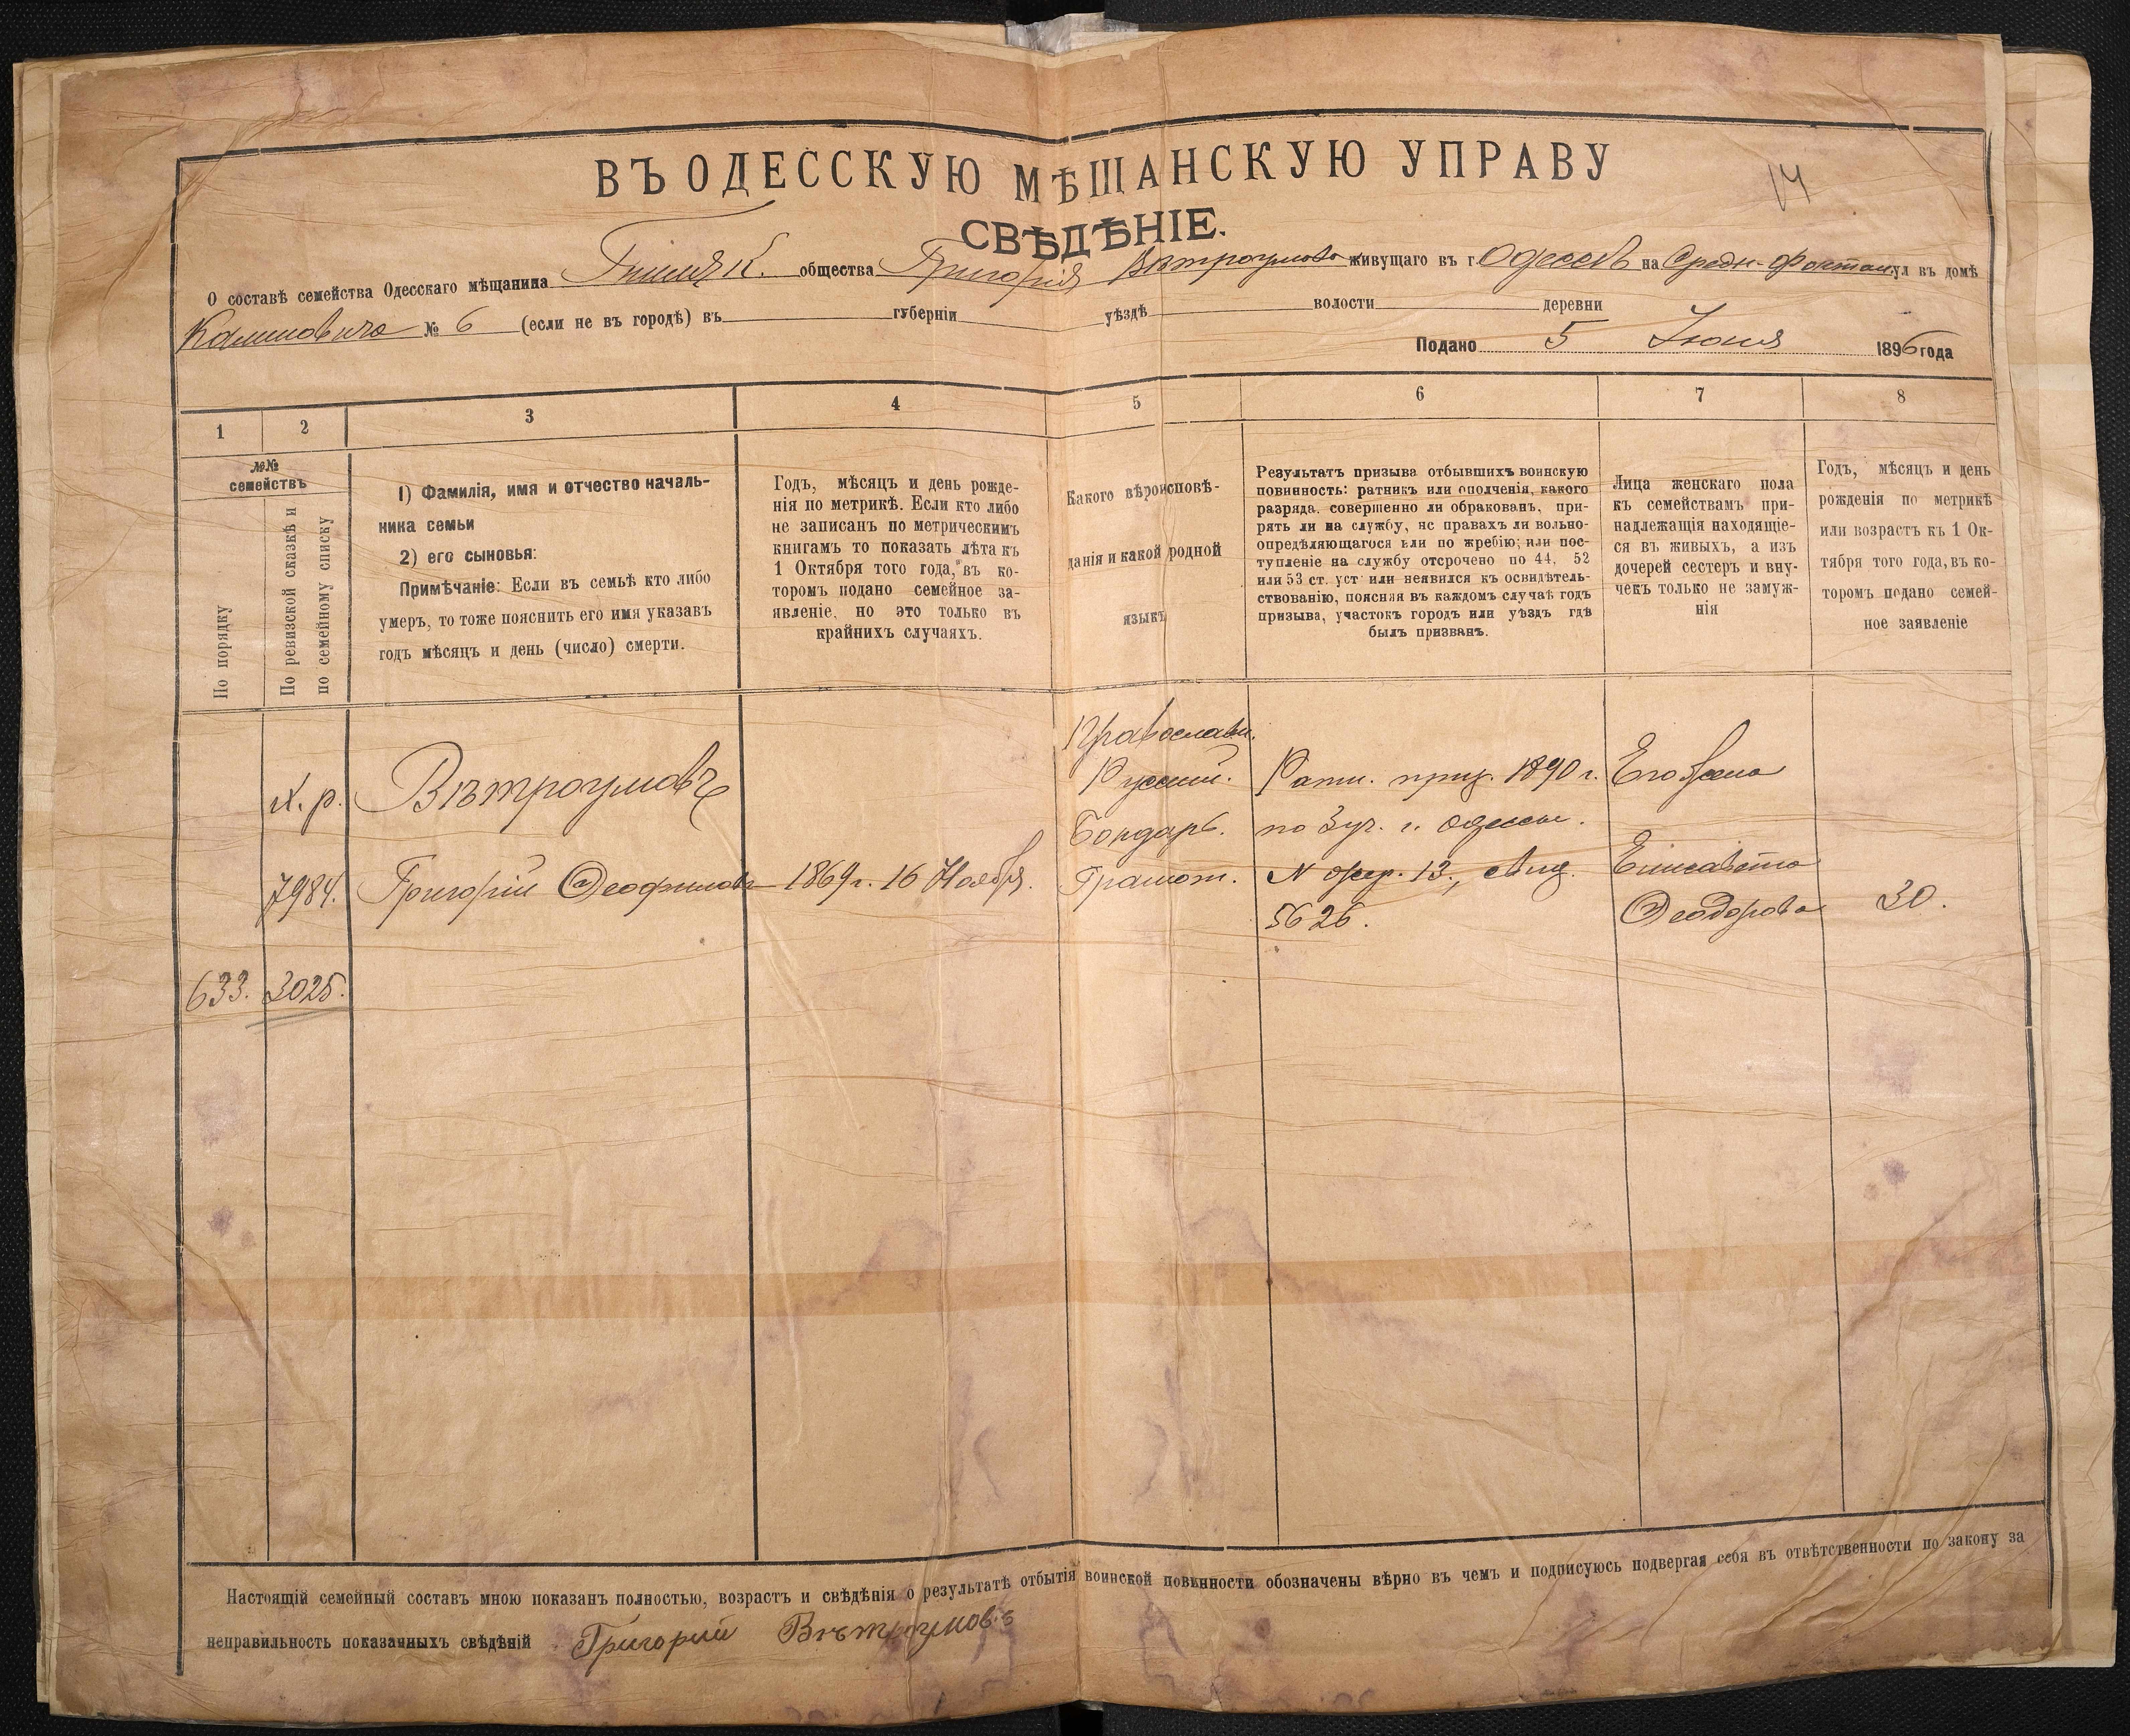 14
ВЪ ОДЕССКУЮ МѢЩАНСКУЮ УПРАВУ
СВѢДѢНІЕ.
О составѣ семейства Одесскаго мѣщанина общества Григорія Вѣтроумова живущаго въ г. Одессѣ на Средн-Фонтан ул въ домѣ
№ 6 (если не въ городѣ) въ губерніи уѣздѣ волости деревни
Подано 5 Июня 1896 года
1 2 3 4 5 6 7 8
№№
семействъ
По порядку
По ревизской сказкѣ и
по семейному списку
1) Фамилія, имя и отчество началь-
ника семьи
2) его сыновья:
Примѣчаніе: Если въ семьѣ кто либо
умеръ, то тоже пояснить его имя указавъ
годъ мѣсяцъ и день (число) смерти.
Годъ, мѣсяцъ и день рожде-
нія по метрикѣ. Если кто либо
не записанъ по метрическимъ
книгамъ то показать лѣта къ
1 Октября того года, въ ко-
торомъ подано семейное за-
явленіе, но это только въ
крайнихъ случаяхъ.
Какого вѣроисповѣ-
данія и какой родной
языкъ
Результатъ призыва отбывшихъ воинскую
повинность: ратникъ или ополченія, какого
разряда, совершенно ли обракованъ, при-
рять ли на службу, нс правахъ ли вольно-
опредѣляющагося или по жребію; или пос-
тупленіе на службу отсрочено по 44, 52
или 53 ст. уст или неявился къ освидѣтель-
ствованію, поясняя въ каждомъ случаѣ годъ
призыва, участокъ городъ или уѣздъ гдѣ
былъ призванъ.
Лица женскаго пола
къ семействамъ при-
надлежащія находящіе-
ся въ живыхъ, а изъ
дочерей сестеръ и вну-
чекъ только не замуж-
нія
Годъ, мѣсяцъ и день
рожденія по метрикѣ
или возрастъ къ 1 Ок-
тября того года, въ ко-
торомъ подано семей-
ное заявленіе
Православн.
Х. р. Вѣтроумовъ Русский. Ратн. приз. 1890 г. Его жена
Бондарь. по 3 уч. г. Одессы.
7984. Григорій Ѳеофиловъ 1869 г. 16 Ноября. Грамот. № жер. 13., Елисавета
5626. Ѳеодорова 30.
633. 3025.
Настоящій семейный составъ мною показанъ полностью, возрастъ и свѣдѣнія о результатѣ отбытія воинской повинности обозначены вѣрно въ чемъ и подписуюсь подвергая себя въ отвѣтственности по закону за
неправильность показанныхъ свѣдѣній Григорий Вѣтроумовъ